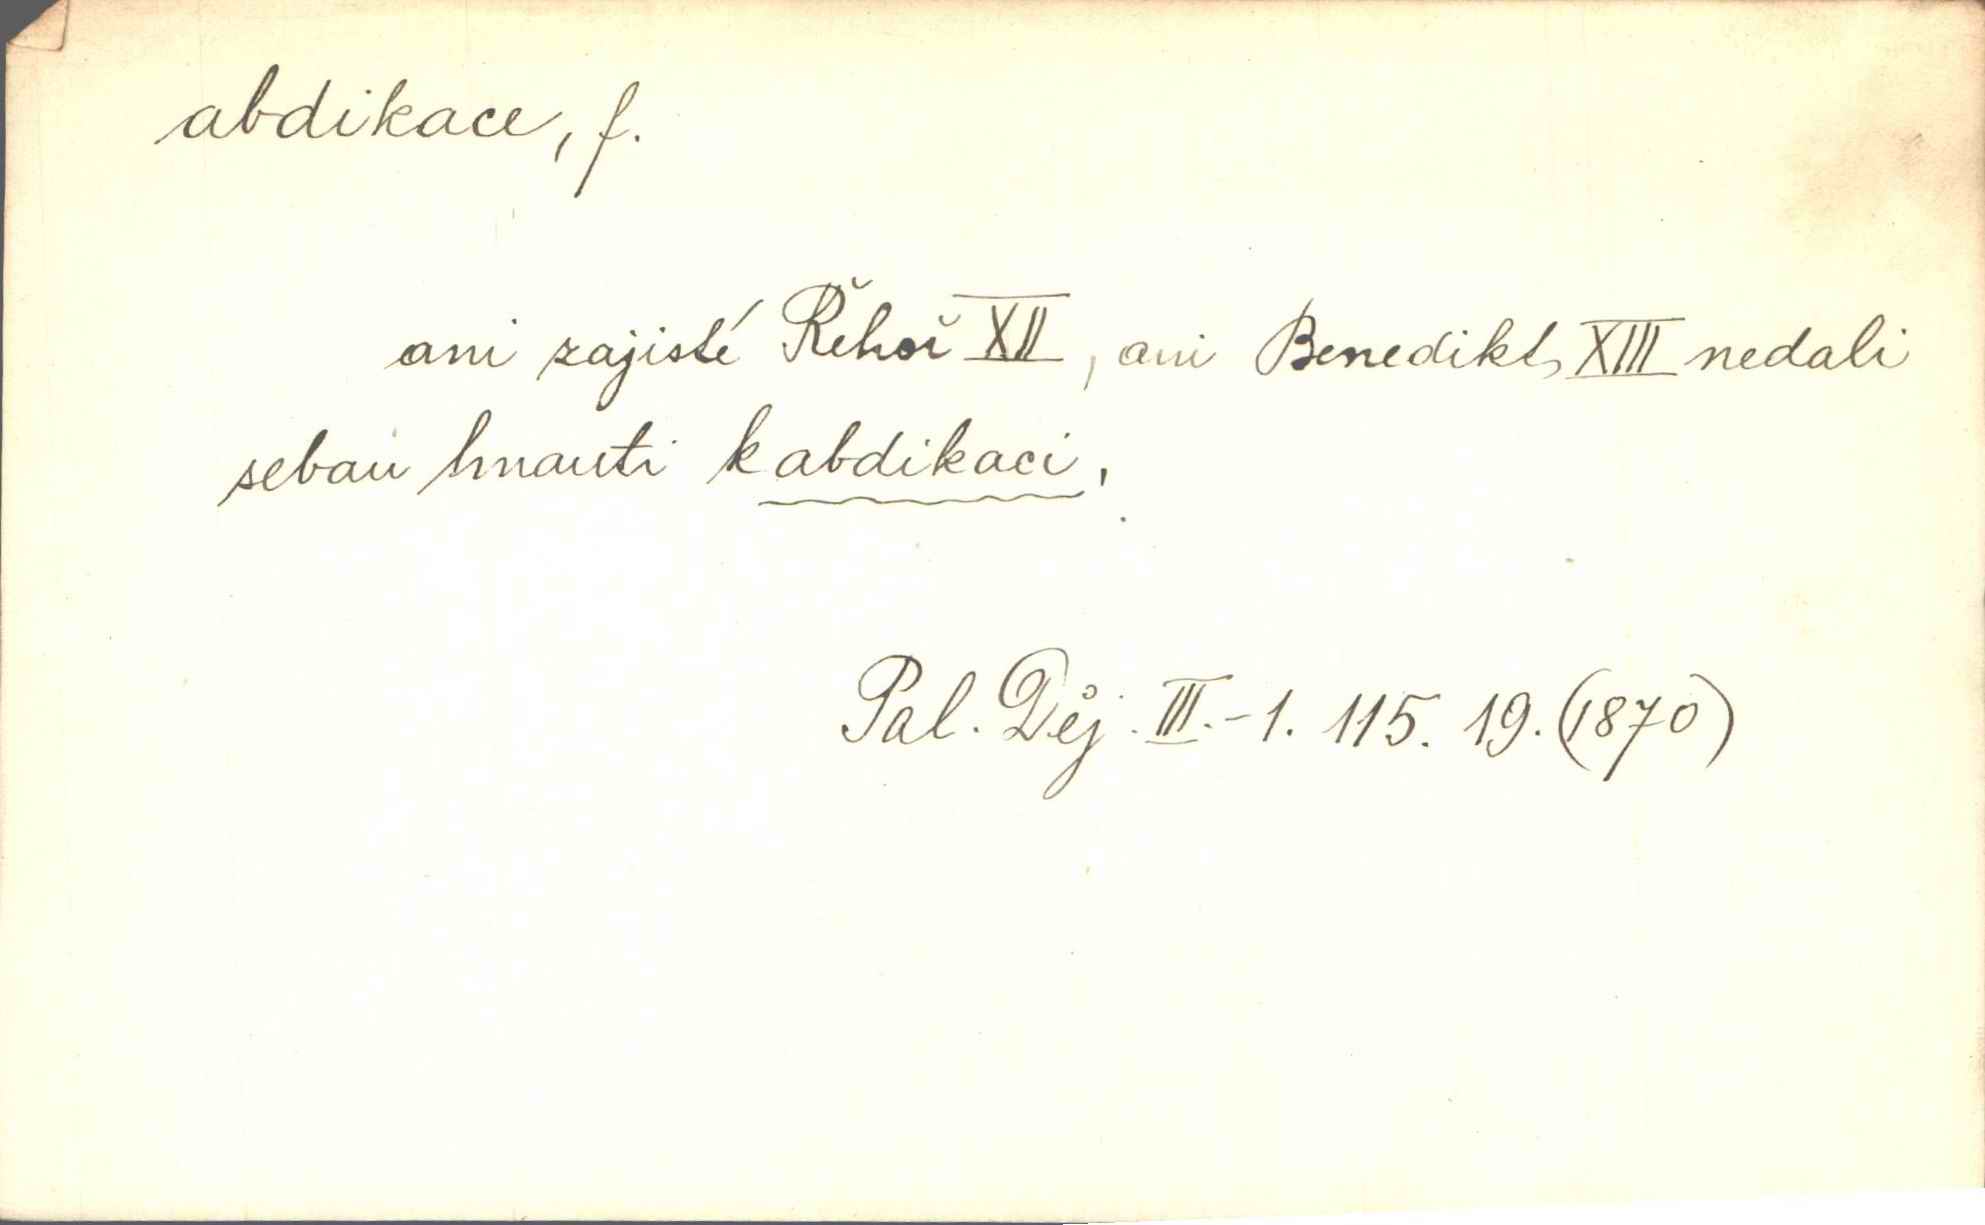 abdikace, f.
ani zajisté Řehoř XII, ani Benedikt XIII nedali
sebau hnauti k abdikaci,
Pal. Děj. III.-1. 115. 19. (1870)